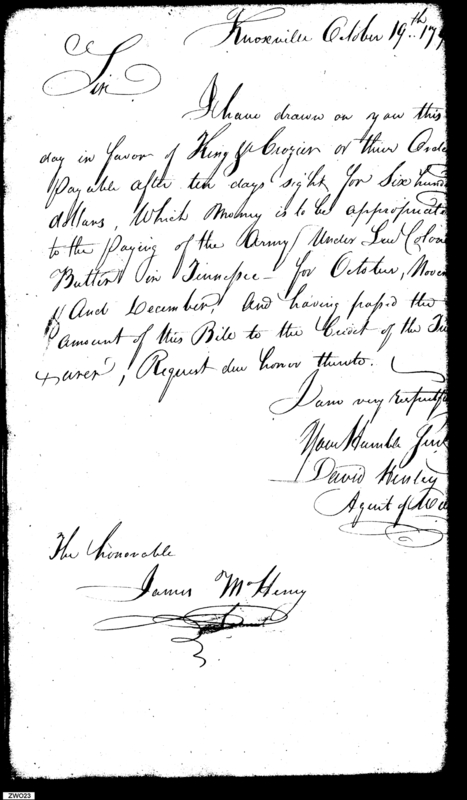 Knoxville October 19th 179
Sir
I have drawn on you this
day in favor of King & Crozier or their Orde
payable after ten days sight for Six hund
dollars, Which Money is to be appropriate
to the paying of the Army Under Lieu Colon
Butler in Tinnessee - for October, Novem
And December, And having passd the
amount of this Bile to the Credit of the Tre
asurer, Request due honor thereto.
I am very respectfu
Your Humble Serv
David Henley
Agent of
The honorable
James McHenry
ZWO23